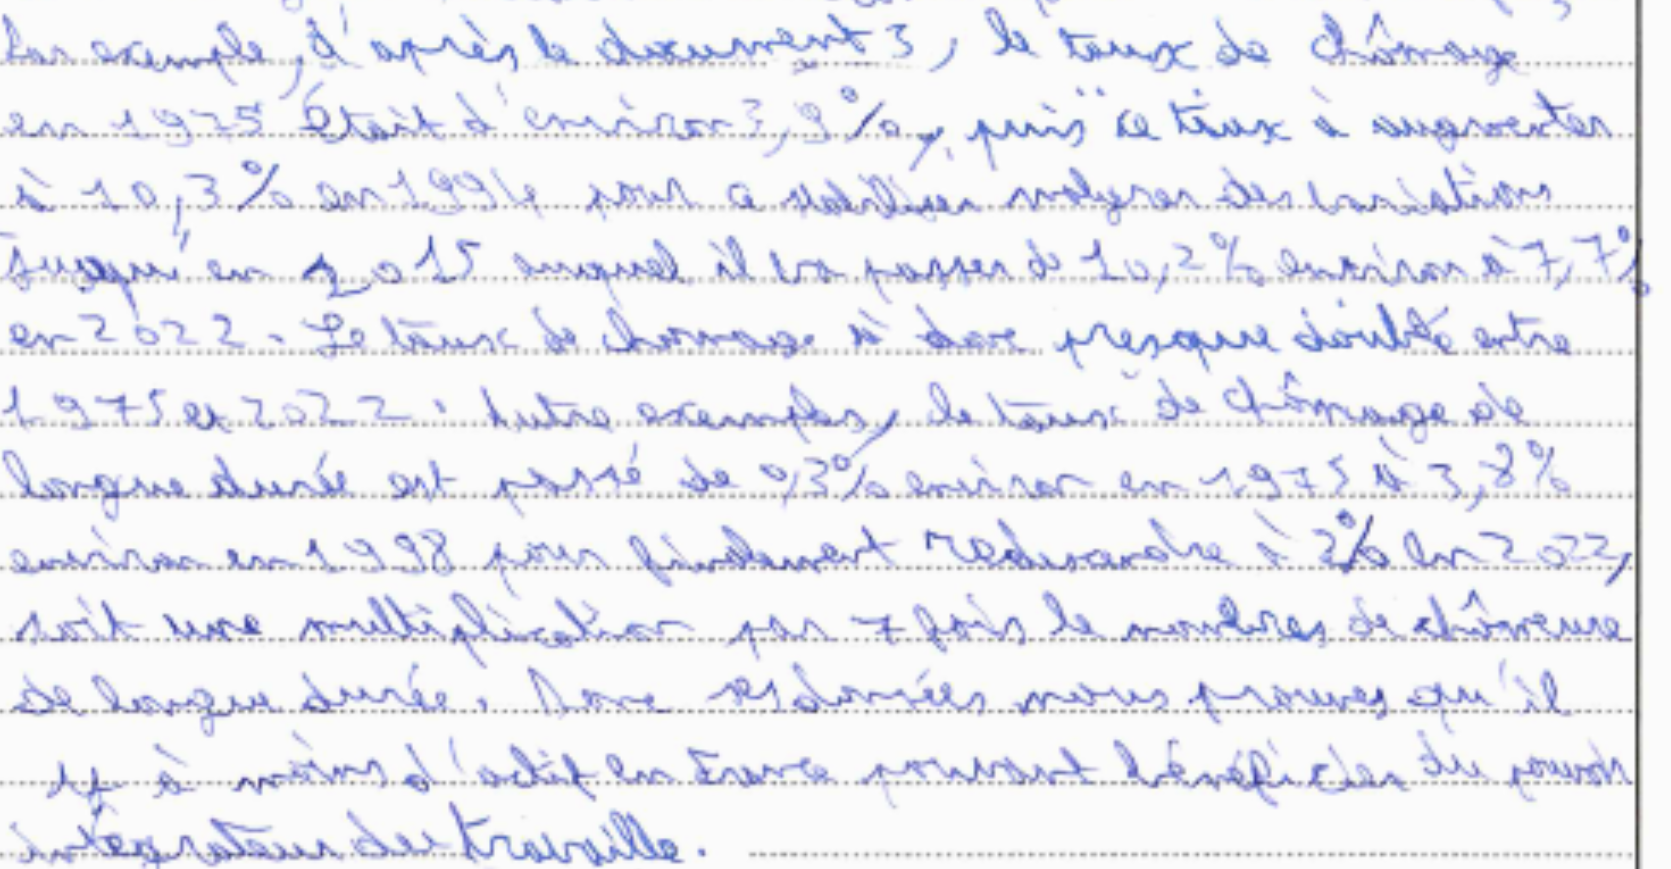 Par exemple, d'après le document 3, le taux de chômage
en 1975 était d'environ 3,9%, puis ce taux à augmenter
à 10,3% en 1994 pour malgrer des variations
jusqu'en 2015 auquel il va passer de 10,2% environ à 7,7%
en 2022. Le taux de chomage à donc presque doublé entre
1975 et 2022. Autre exemples, le taux de chômage de
longue durée est passé de 0,3% environ en 1975 à 3,8%
environ en 1998 pour finalement redescendre à 2% en 2022,
soit une multiplication par 7 fois le nombres de chômeure
de longue durée. Donc ses données nous prouves qu'il
y à moins d'actif en France pouvant bénéficier du pouvoir
intégrateur du travaille.